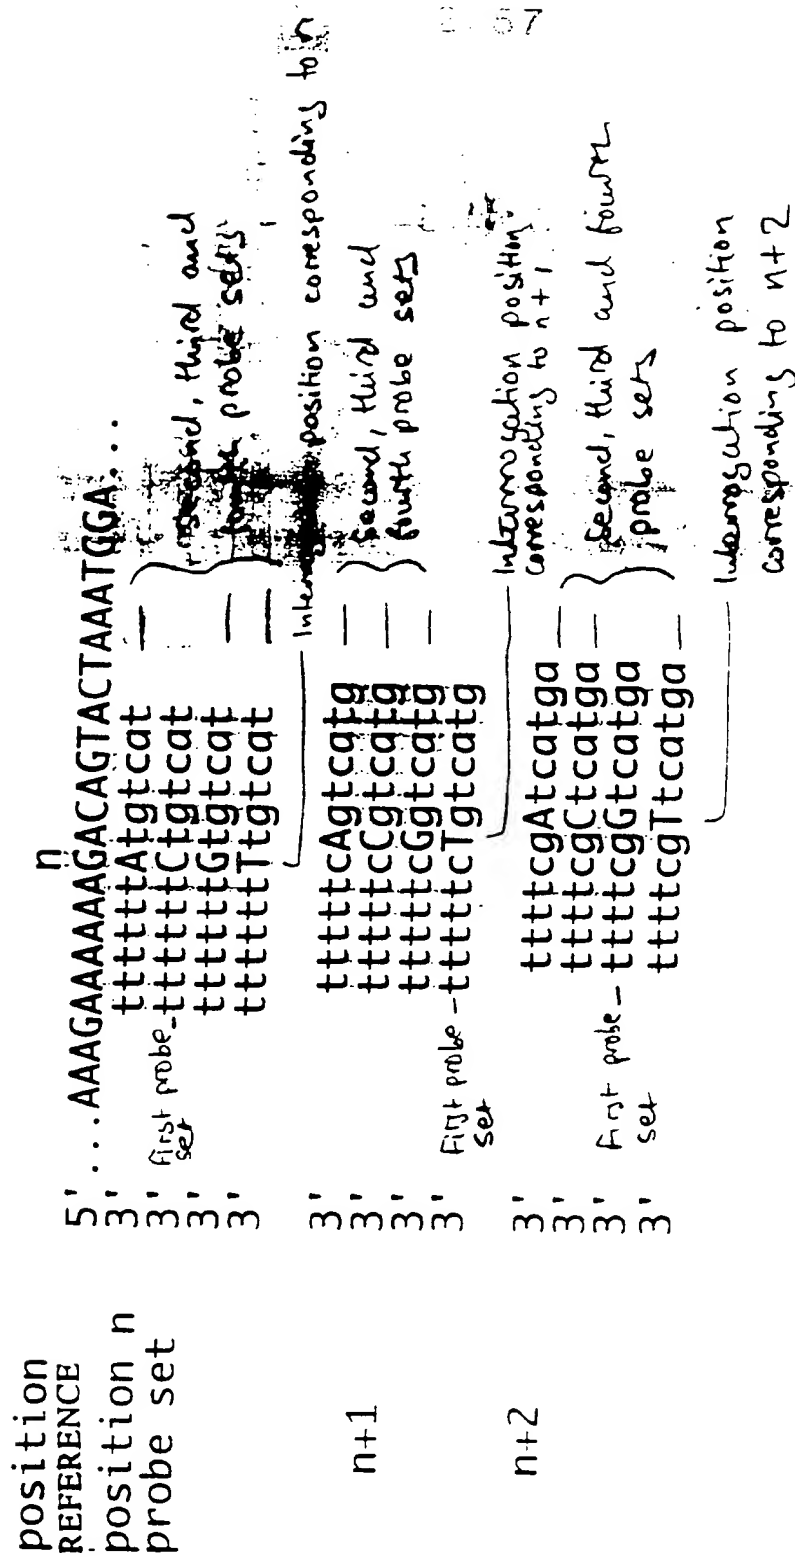 position n
REFERENCE 5'...AAAGAAAAAAGACAGTACTAAATGGA...
position n 3' ttttttAtgtcat —
probe set 3' First probe set – ttttttCtgtcat
3' ttttttGtgtcat —
3' ttttttTtgtcat —
second, third and probe sets
position corresponding to n
3' tttttcAgtcatg —
n+1 3' tttttcCgtcatg —
3' tttttcGgtcatg —
3' First probe set – tttttcTgtcatg
Second, third and fourth probe sets
Interrogation position corresponding to n+1
3' ttttcgAtcatga —
n+2 3' ttttcgCtcatga —
3' First probe set – ttttcgGtcatga
3' ttttcgTtcatga —
second, third and fourth probe sets
Interrogation position corresponding to n+2